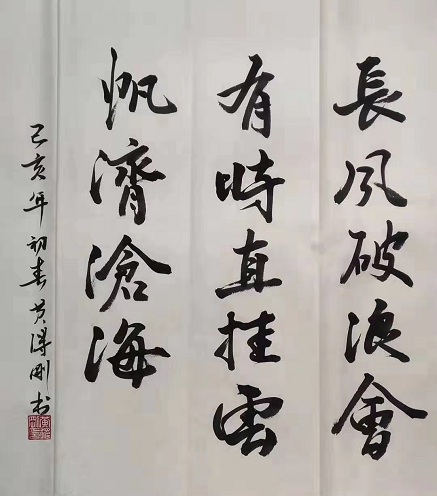 長风破浪會
有時直挂雲
帆濟滄海
己亥年初春黄得刚书